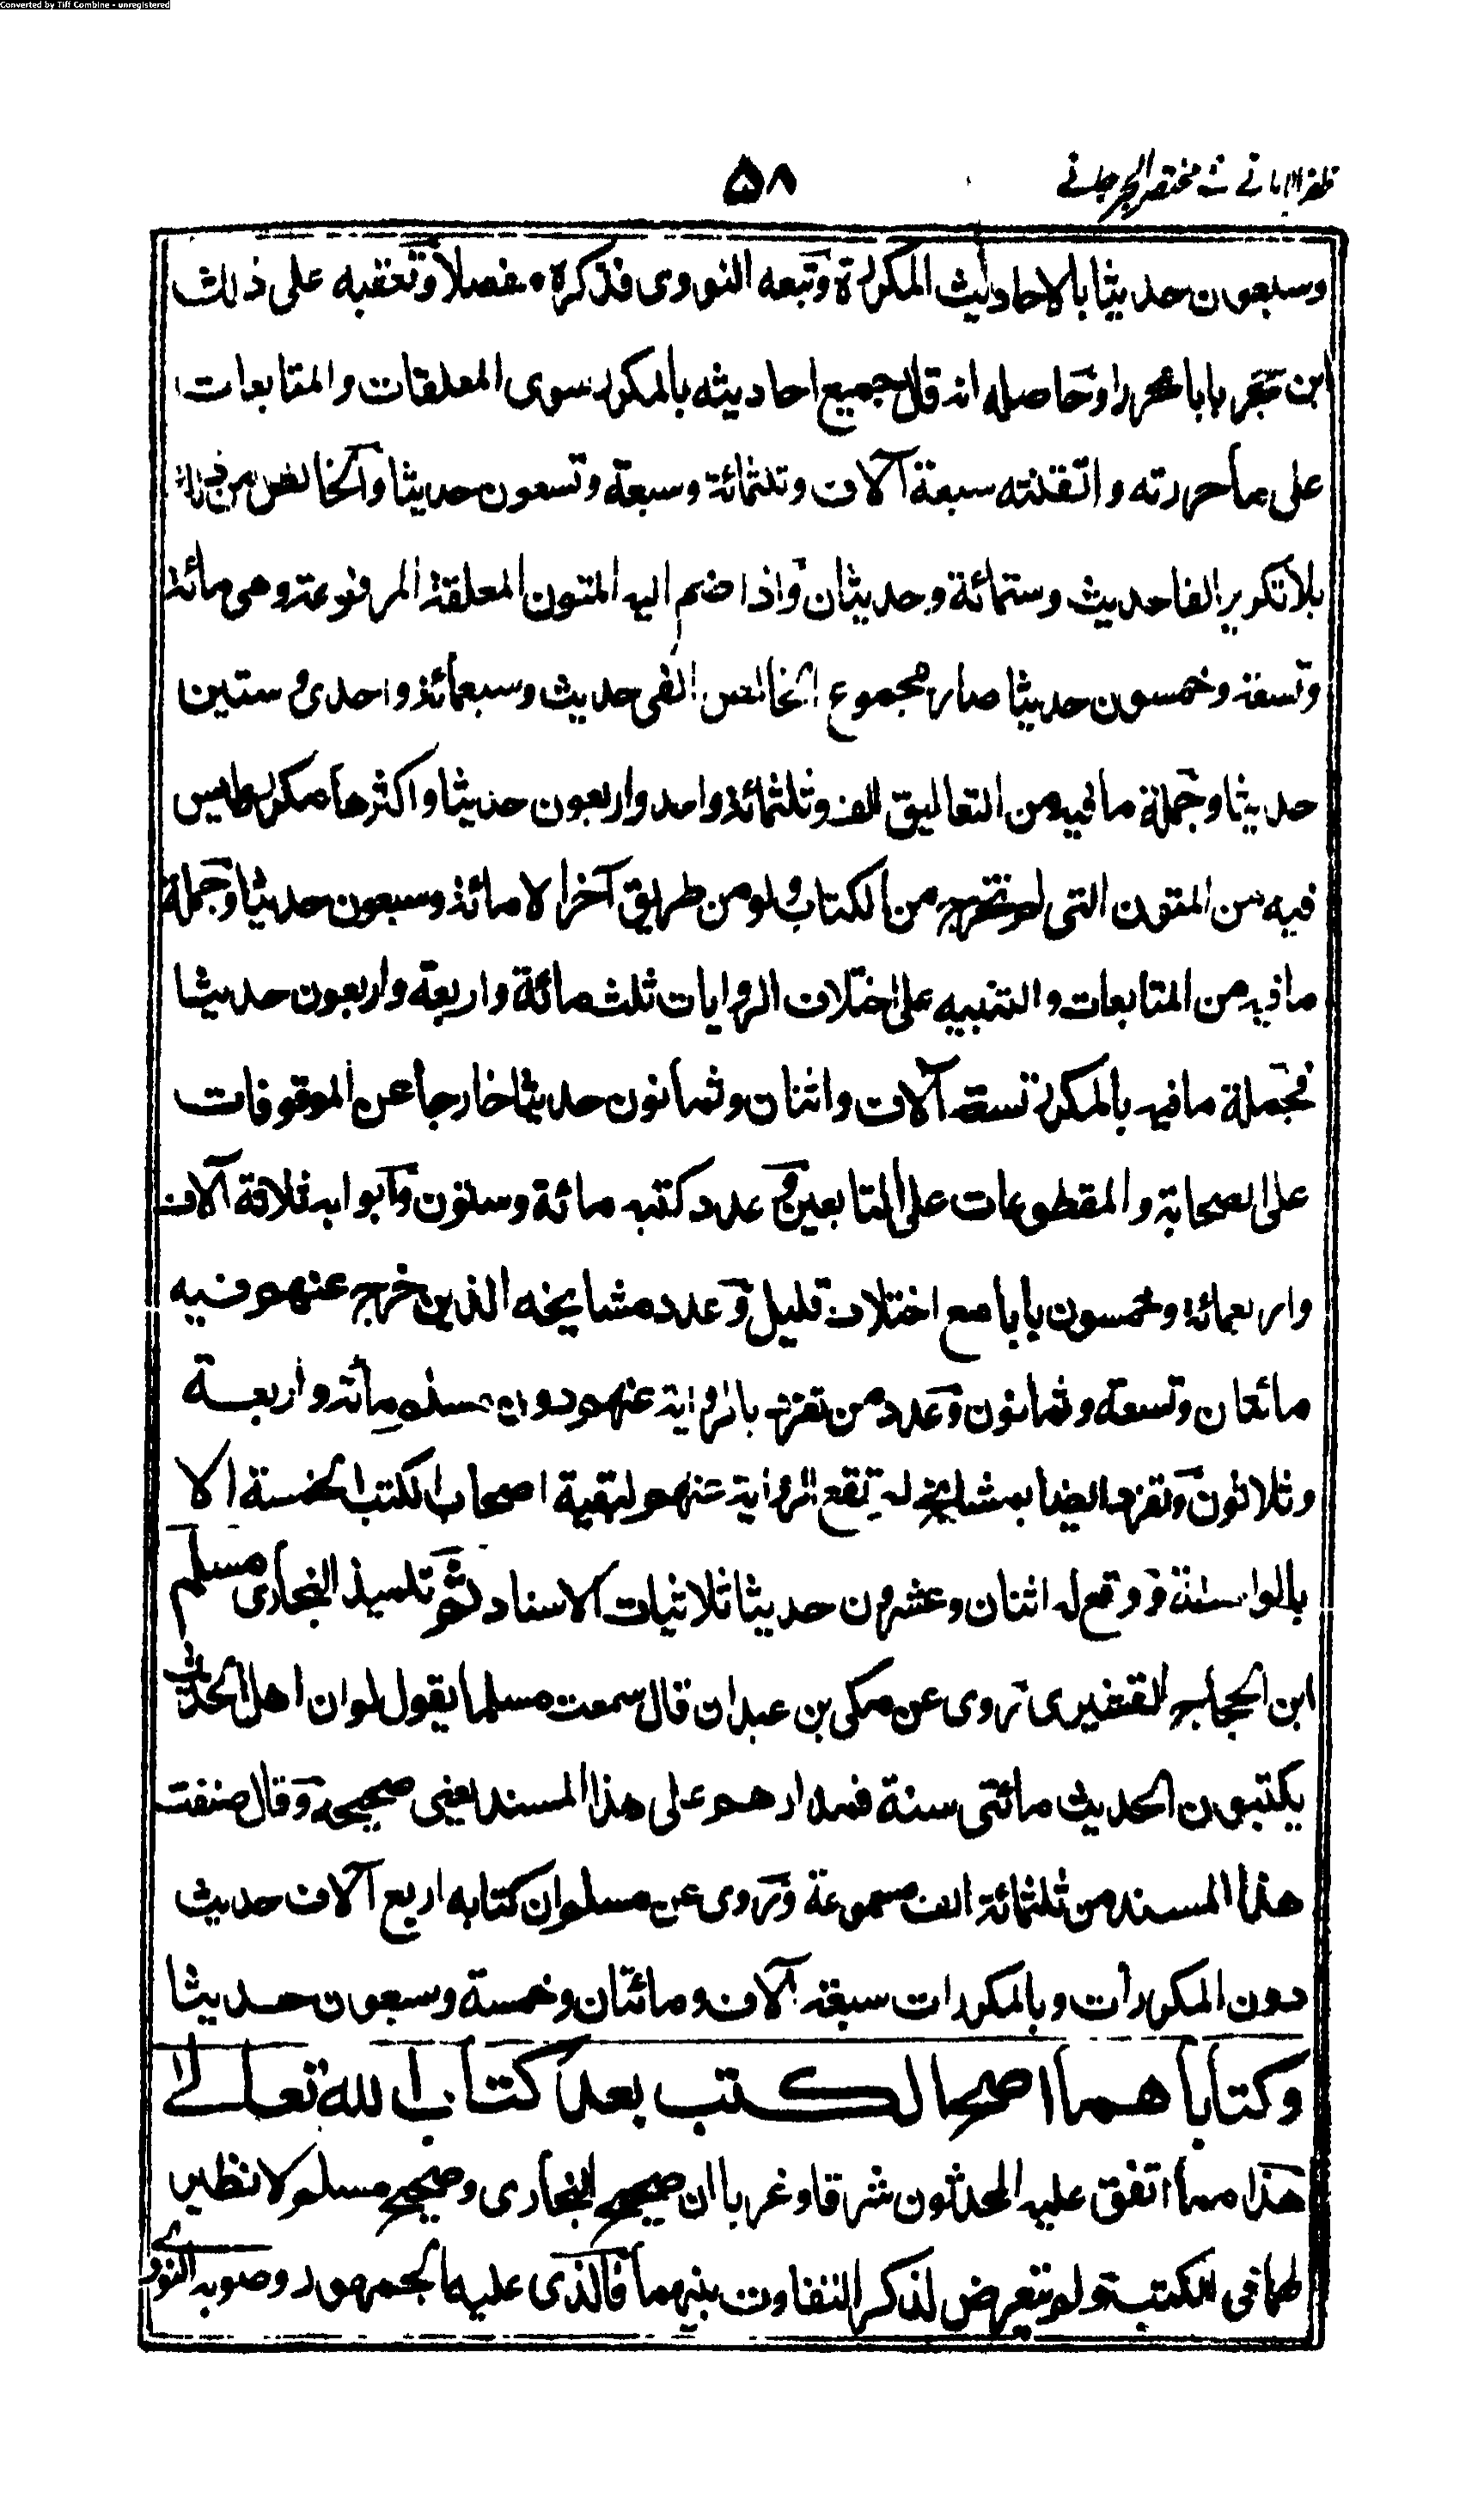 Converted by Tiff Combine - unregistered
ظفر الامانی فی مختصر الجرجانی
۵۸
وسبعون حديثا بالاحاديث المكررة وتبعه النووى فذكره مفصلا وتعقبه على ذلك
ابن حجر بابا محررا وحاصله انه قال جميع احاديثه بالمكرر سوى المعلقات والمتابعات
على ما حررته واتقنته سبعة آلاف وثلثمائة وسبعة وتسعون حديثا والخالص من ذلك
بلا تكرير الفا حديث وستمائة وحديثان واذا ضم اليه المتون المعلقة المرفوعة وهى مائة
وتسعة وخمسون حديثا صار مجموع الخالص الفى حديث وسبعمائة واحدى وستين
حديثا وجملة ما فيه من التعاليق الف وثلثمائة واحد واربعون حديثا واكثرها مكرر ليس
فيه من المتون التى لم تخرج من الكتاب ولو من طريق آخر الا مائة وسبعون حديثا وجملة
ما فيه من المتابعات والتنبيه على اختلاف الروايات ثلث مائة واربعة واربعون حديثا
فجملة ما فيه بالمكرر تسعة آلاف واثنان وثمانون حديثا خارجا عن الموقوفات
على الصحابة والمقطوعات على التابعين و عدد كتبه مائة وستون وابوابه ثلاثة آلاف
واربعمائة وخمسون بابا مع اختلاف قليل وعدد مشايخه الذين خرج عنهم فيه
مائتان وتسعة وثمانون وعدد من تفرد بالرواية عنهم دون مسلم مائة واربعة
وثلاثون وتفرد ايضا بمشايخ لم تقع الرواية عنهم لبقية اصحاب الكتب الخمسة الا
بالواسطة ووقع له اثنان وعشرون حديثا ثلاثيات الاسناد ثم تلميذ البخارى مسلم
ابن الحجاج القشيرى روى عن مكى بن عبدان قال سمعت مسلما يقول لو ان اهل الحديث
يكتبون الحديث مائتى سنة فمدارهم على هذا المسند يعنى صحيحه وقال صنفت
هذا المسند من ثلثمائة الف مسموعة وروى عن مسلم ان كتابه اربع آلاف حديث
دون المكررات وبالمكررات سبعة آلاف ومائتان وخمسة وسبعون حديثا
وكتاباهما اصح الكتب بعد كتاب الله تعالى
هذا مما اتفق عليه المحدثون شرقا وغربا ان صحيح البخارى وصحيح مسلم لا نظير
لهما فى الكتب ولم يتعرض لذكر التفاوت بينهما فالذى عليه الجمهور وصوبه النووى